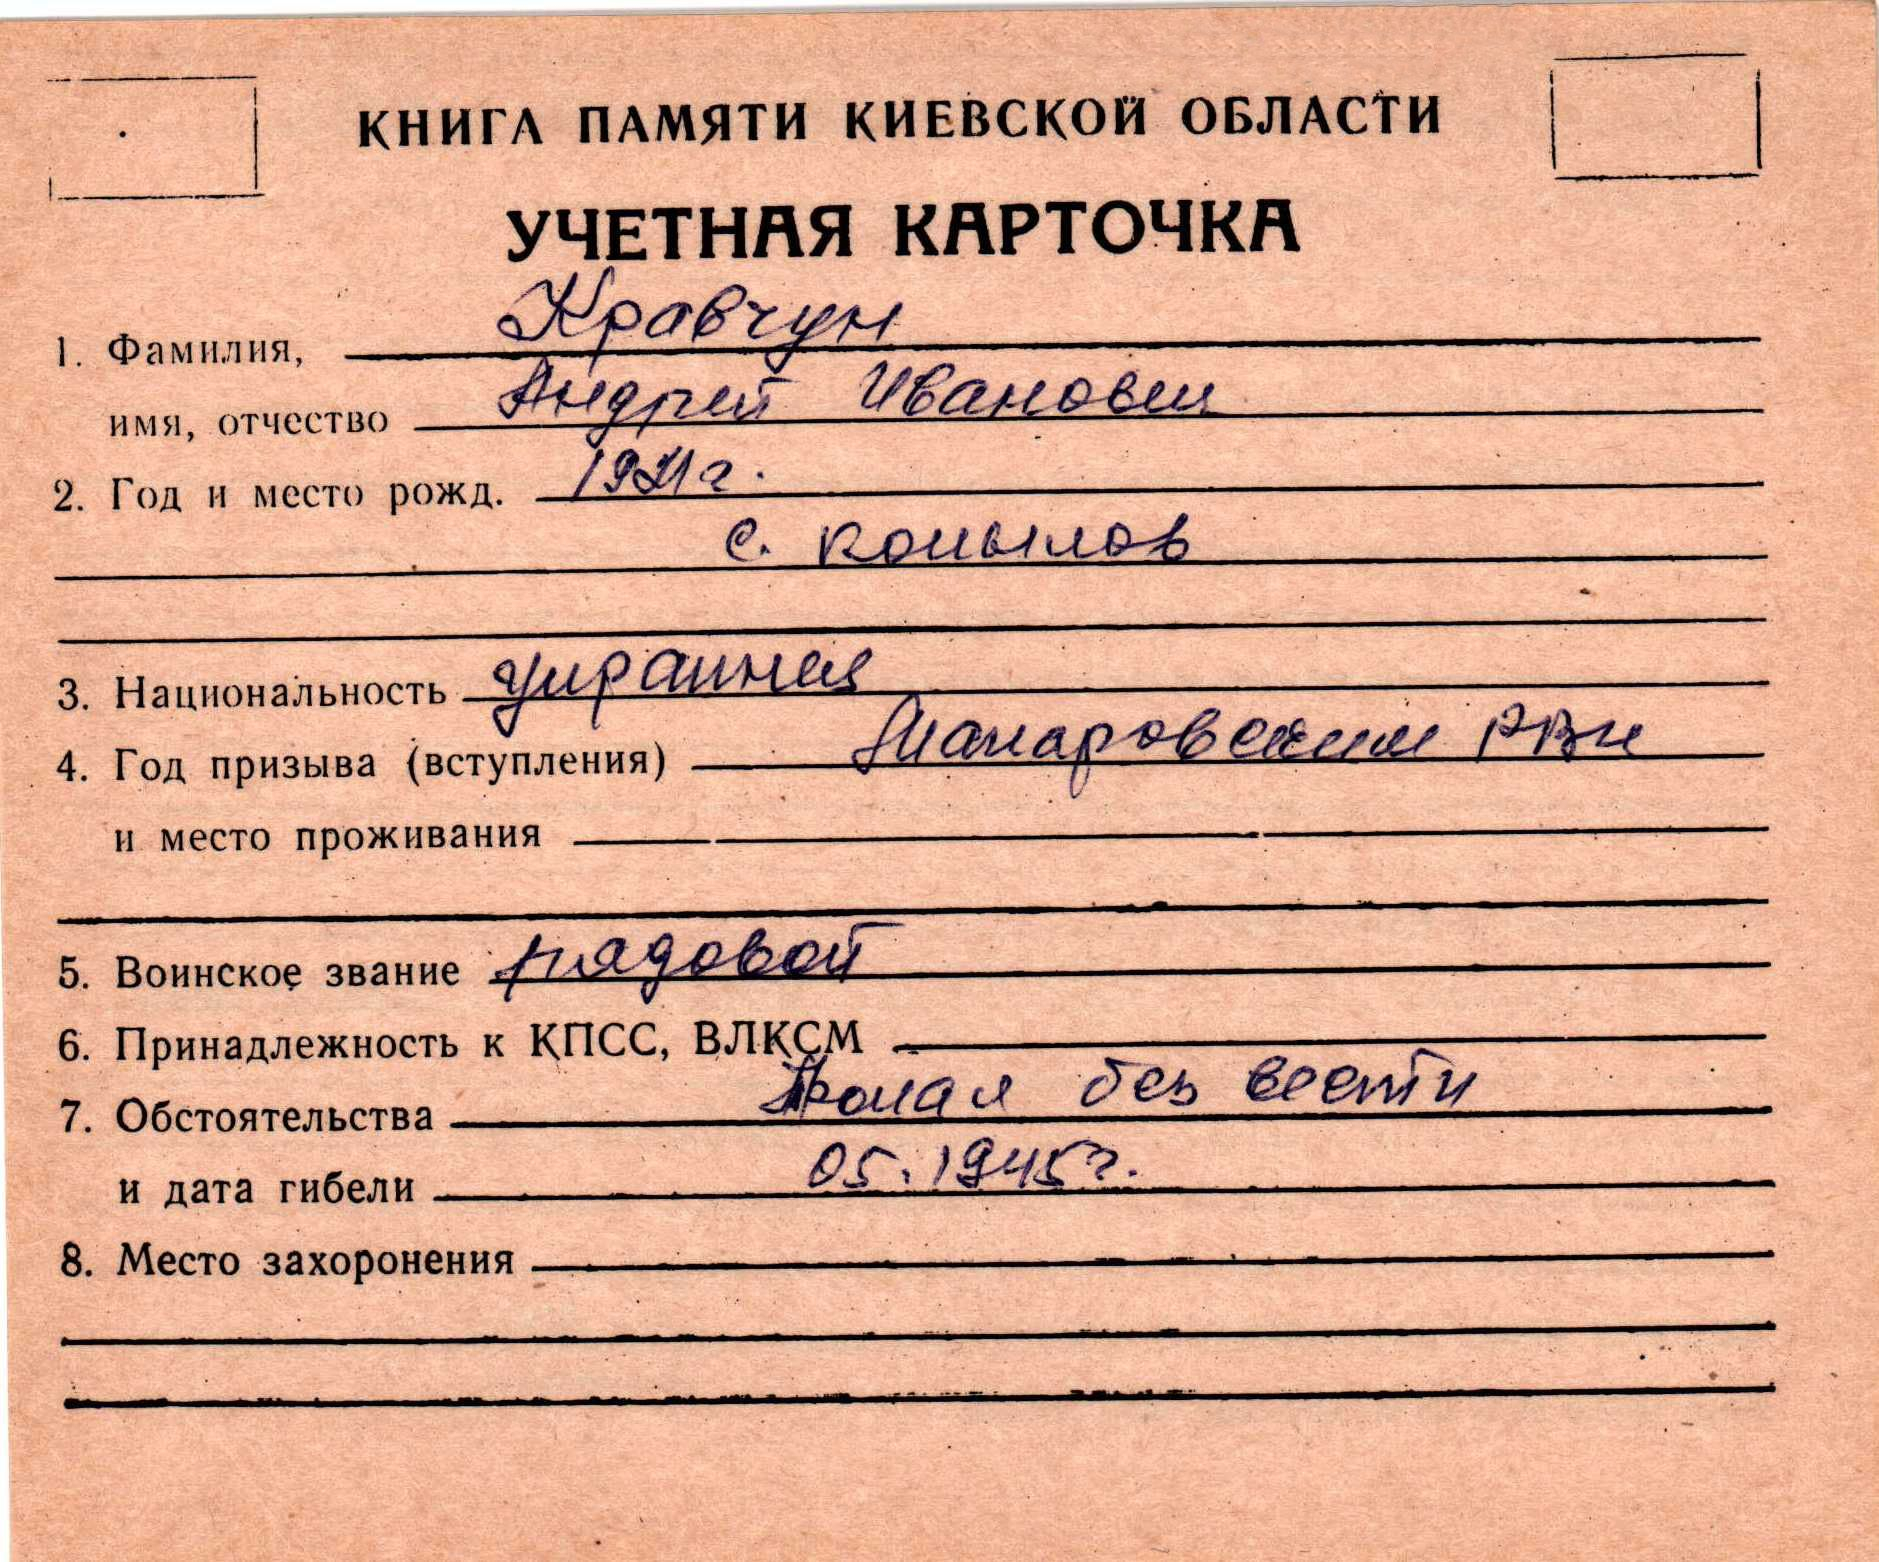 КНИГА ПАМЯТИ КИЕВСКОЙ ОБЛАСТИ
УЧЕТНАЯ КАРТОЧКА
1. Фамилия, Кравчун
имя, отчество Андрей Иванович
2. Год и место рожд. г.
с. Копылов
3. Национальность украинец
4. Год призыва (вступления) Макаровским РВК
и место проживания
5. Воинское звание рядовой
6. Принадлежность к КПСС, ВЛКСМ
7. Обстоятельства Пропал без вести
и дата гибели 05.1945г.
8. Место захоронения